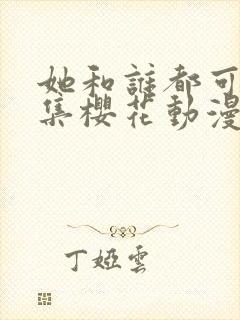 她和誰都可
集櫻花動漫
丁婭雲